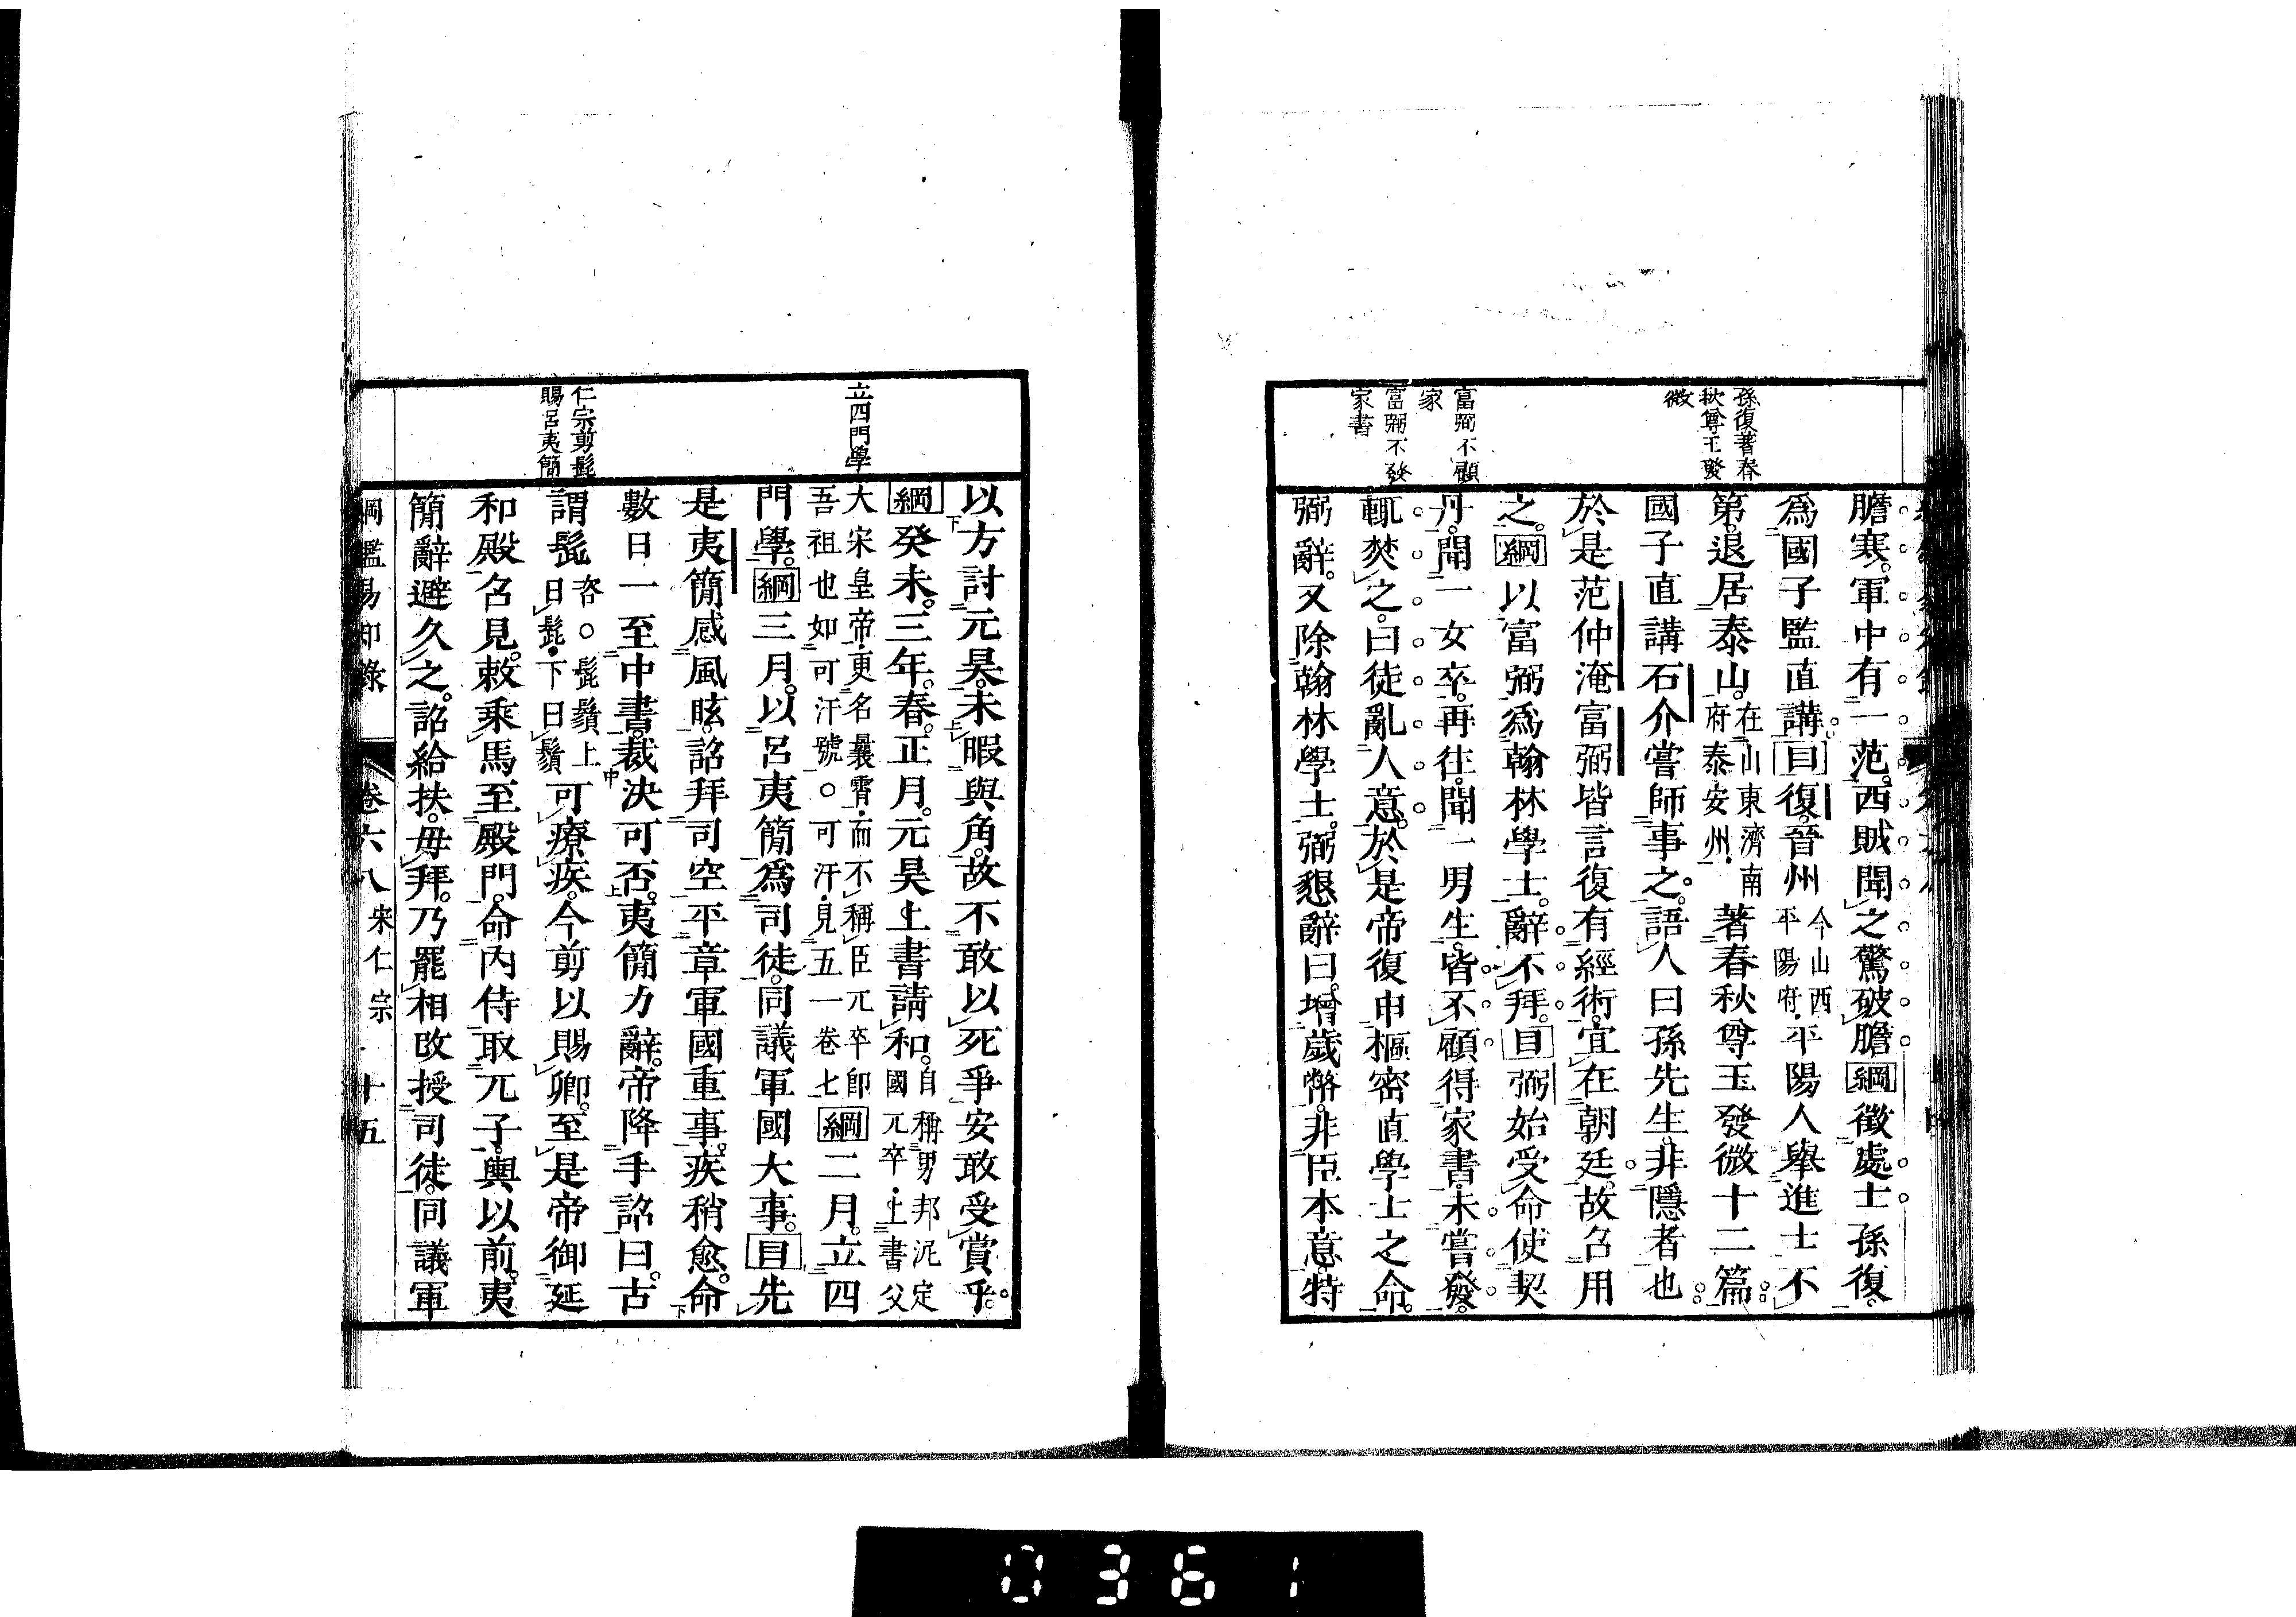 孫復著春
秋尊王發
微
富弼不顧
家
富弼不發
家書
膽寒。軍中有一范。西賊聞之驚破膽綱徵處士孫復。
爲國子監直講目復。晉州今山西平陽府。平陽人舉進士不
第。退居泰山。在山東濟南府泰安州。著春秋尊王發微十二篇
國子直講石介嘗師事之。語人曰孫先生。非隱者也
於是范仲淹富弼皆言復有經術。宜在朝廷。故召用
之。綱以富弼爲翰林學士。辭不拜。目弼始受命使契
丹。聞一女卒。再往。聞一男生。皆不顧得家書。未嘗發。
輒焚之。曰徒亂人意。於是帝復申樞密直學士之命。
弼辭。又除翰林學士。弼懇辭曰。增歲幣。非臣本意。特
立四門學
仁宗剪髭
賜呂夷簡
以方討元昊。未暇與角。故不敢以死爭安敢受賞乎。
綱癸未。三年。春。正月。元昊上書請和。自稱男邦泥定國兀卒。上書父
大宋皇帝。更名曩霄。而不稱臣兀卒卽吾祖也如可汗號。○可汗。見五一卷七綱二月。立四
門學。綱三月。以呂夷簡爲司徒。同議軍國大事。目先
是夷簡感風眩。詔拜司空平章軍國重事。疾稍愈。命
數日一至中書。裁決可否。夷簡力辭。帝降手詔曰。古
謂髭咨。○髭鬚上曰髭。下曰鬚可療疾。今剪以賜卿。至是帝御延
和殿召見。敕乘馬至殿門。命內侍取兀子。輿以前。夷
簡辭避久之。詔給扶。毋拜。乃罷相改授司徒。同議軍
綱鑑易知錄
卷六八
宋仁宗
十五
0361